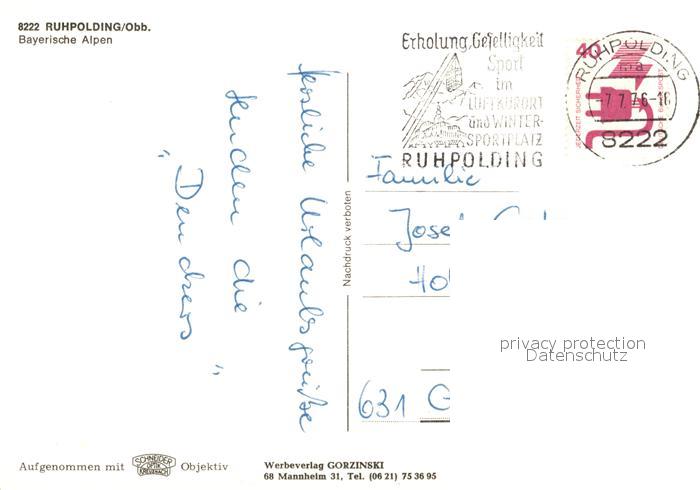 8222 RUHPOLDING/Obb.
Bayerische Alpen
Erholung, Geselligkeit
Sport
im
LUFTKURORT
und WINTER-
SPORTPLATZ
RUHPOLDING
40
JEDERZEIT SICHERHEIT
RUHPOLDING
-7.7.76-18
8222
herzliche Urlaubsgrüße
senden die
"Denckers"
Nachdruck verboten
Familie
Jose
Ho
631 G
privacy protection
Datenschutz
Aufgenommen mit SCHNEIDER OPTIK KREUZNACH Objektiv
Werbeverlag GORZINSKI
68 Mannheim 31, Tel. (06 21) 75 36 95